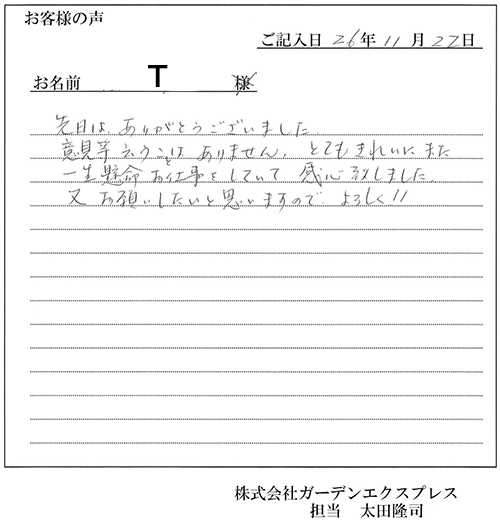 お客様の声
ご記入日 26年 11月 27日
お名前 T 様
先日は、ありがとうございました。
意見等云うことは ありません。とてもきれいに また
一生懸命 お仕事をしていて 感心致しました。
又 お願いしたいと思いますので、よろしく!!
株式会社ガーデンエクスプレス
担当 太田隆司